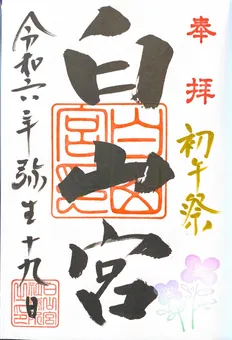 奉拝
初午祭
白山宮
白山宮印
令和六年弥生十九日